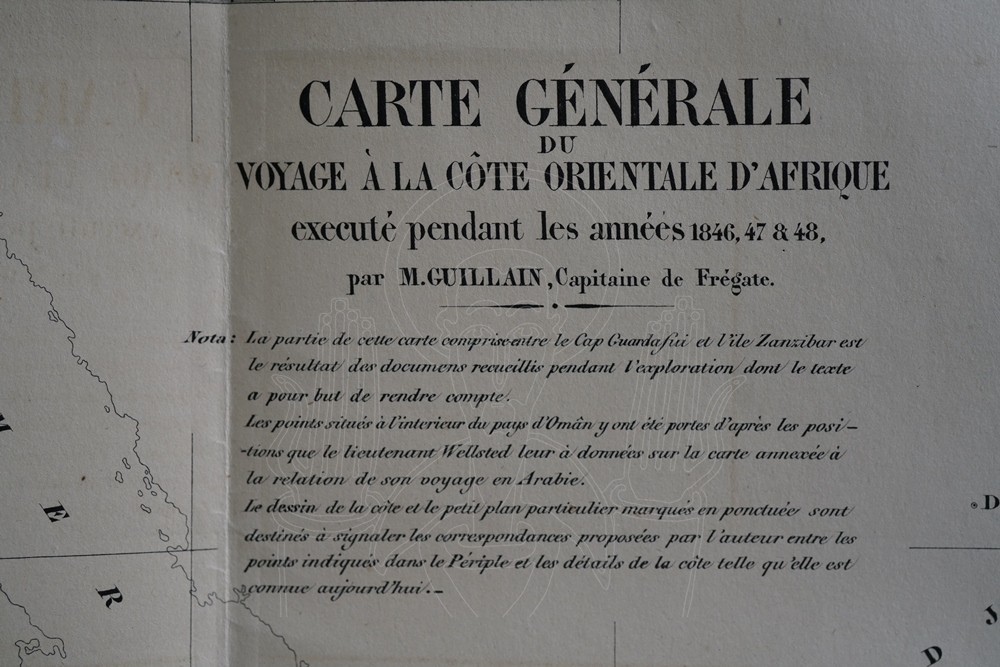 CARTE GÉNÉRALE
DU
VOYAGE À LA CÔTE ORIENTALE D'AFRIQUE
executé pendant les années 1846, 47 & 48,
par M. GUILLAIN, Capitaine de Frégate.
Nota: La partie de cette carte comprise entre le Cap Guardafui et l'île Zanzibar est
le résultat des documens recueillis pendant l'exploration dont le texte
a pour but de rendre compte.
Les points situés à l'interieur du pays d'Omân y ont été portes d'après les posi-
-tions que le lieutenant Wellsted leur à données sur la carte annexée à
la relation de son voyage en Arabie.
Le dessin de la côte et le petit plan particulier marqués en ponctuée sont
destinés à signaler les correspondances proposées par l'auteur entre les
points indiqués dans le Périple et les détails de la côte telle qu'elle est
connue aujourd'hui.-
M
E
R
D
J
D